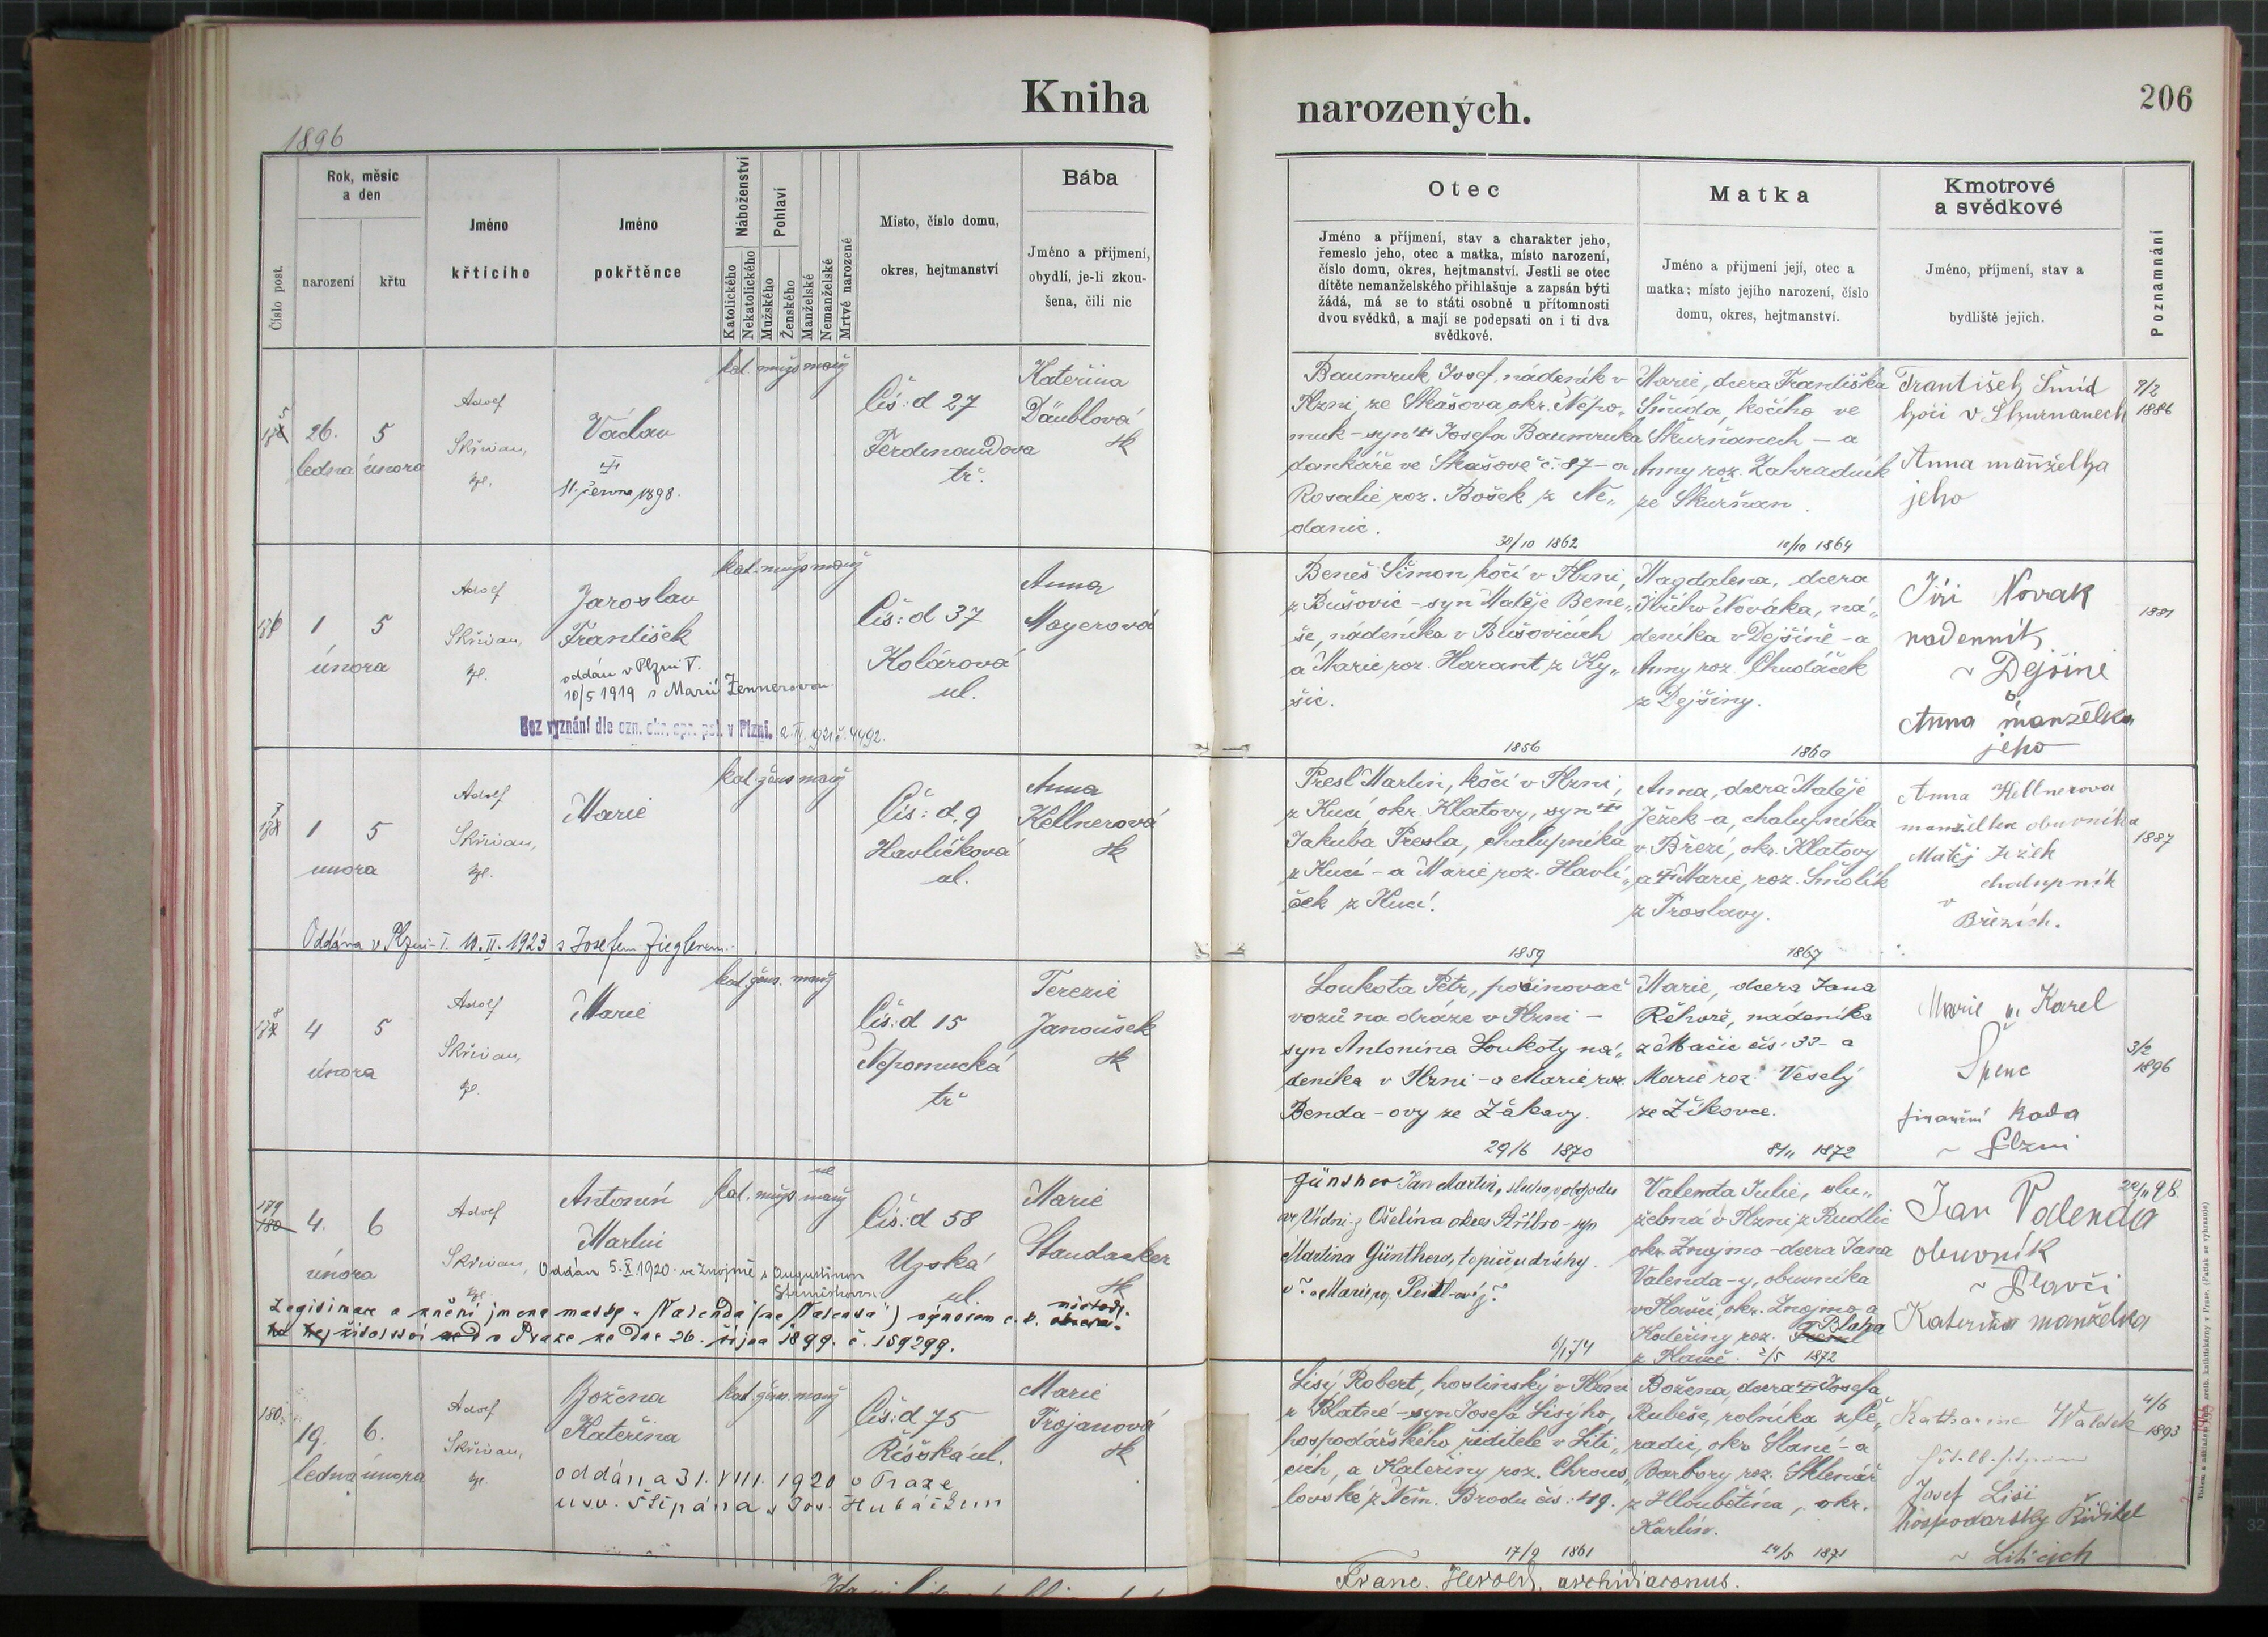 Kniha
narozených.
206
1896
Rok, měsíc
a den
narození
křtu
Číslo post.
Jméno
křtícího
Jméno
pokřtěnce
Náboženství
Katolického
Nekatolického
Pohlaví
Mužského
Ženského
Manželské
Nemanželské
Mrtvé narozené
Místo, číslo domu,
okres, hejtmanství
Bába
Jméno a přijmení,
obydlí, je-li zkou-
šena, čili nic
Otec
Jméno a příjmení, stav a charakter jeho,
řemeslo jeho, otec a matka, místo narození,
číslo domu, okres, hejtmanství. Jestli se otec
dítěte nemanželského přihlašuje a zapsán býti
žádá, má se to státi osobně u přítomnosti
dvou svědků, a mají se podepsati on i ti dva
svědkové.
Matka
Jméno a přijmení její, otec a
matka; místo jejího narození, číslo
domu, okres, hejtmanství.
Kmotrové
a svědkové
Jméno, přijmení, stav a
bydliště jejich.
Poznamnání
26.
ledna
5
února
Adolf
Skřivan,
kpl.
Václav
11. června 1898.
kat. mužs manž
Čís: d 27
Ferdinandova
tř.
Kateřina
Däublová
zk
Baumruk Josef, nádeník v
Plzni, ze Skašova, okr. Nepo-
muk - syn Josefa Baumruka
dankáře ve Skašově č. 87 - a
Rosalie roz. Bošek z Ne-
danic.
30/10 1862
Marie, dcera Františka
Šmída, kočího ve
Skurňanech - a
Anny roz. Zahradník
ze Skurňan.
10/10 1864
František Šmíd
kočí v Skurnanech
Anna manželka
jeho
7/2
1886
1
5
února
Adolf
Skřivan,
kpl.
Jaroslav
František
oddán v Plzni V.
10/5 1919 s Marií Zennerovou
Bez vyznání dle ozn. okr. spr. pol. v Plzni.
kat. mužs manž
Čís: d 37
Kolárová
ul.
Anna
Mayerová
Beneš Šimon, kočí v Plzni,
z Bušovic - syn Matěje Bene-
še, nádeníka v Bušovicích
a Marie roz. Harant z Ky-
šic.
1856
Magdalena, dcera
Jiřího Nováka, ná-
deníka v Dejšině - a
Anny roz. Chudáček
z Dejšiny.
1860
Jiří Novak
nadenník
v Dejšině
Anna manželka
jeho
1881
1
5
února
Adolf
Skřivan,
kpl.
Marie
kat. žens manž
Čís: d. 9
Havlíčková
ul.
Anna
Kellnerová
zk
Oddána v Plzni - I. 10. II. 1923 s Josefem Zieglerem.
Presl Martin, kočí v Plzni,
z Kucí, okr. Klatovy, syn
Jakuba Presla, chalupníka
z Kucí - a Marie roz. Havlí-
ček z Kucí.
1859
Anna, dcera Matěje
Ježek-a, chalupníka
v Březí, okr. Klatovy
a Marie, roz. Smolík
z Troslavy.
1867
Anna Kellnerova
manželka obuvníka
Matěj Ježek
chalupník
v
Březích.
1887
4
5
února
Adolf
Skřivan,
kpl.
Marie
kat. žens. manž
Čís: d 15
Nepomucká
tř
Terezie
Janoušek
zk
Loukota Petr, pošinovač
vozů na dráze v Plzni -
syn Antonína Loukoty ná-
deníka v Plzni - a Marie roz.
Benda-ovy ze Žákavy.
29/6 1870
Marie, dcera Jana
Řehoře, nádeníka
z Mačic čís. 33 - a
Marie roz. Veselý
ze Žíkovce.
8/11 1872
Marie a Karel
Špenc
finanční rada
v Plzni
3/2
1896
179
180
4.
6
února
Adolf
Skřivan,
kpl.
Antonín
Martin
Oddán 5. X. 1920 ve Znojmě s Augustinou
kat. mužs manž
ne
Čís: d 58
Uzská
ul.
Marie
Standacker
zk
ho žídelství v Praze ze dne 26. října 1899. č. 159299.
Günther Jan Martin, sluha v obchodu
ve Vídni z Ošelína okres Stříbro - syn
Martina Günthera, topiče u dráhy
6/1 74
Valenta Julie, slu-
žebná v Plzni z Rudlic
okr. Znojmo - dcera Jana
Valenda-y, obuvníka
v Plavči, okr. Znojmo a
Kateřiny roz. Blaha
z Plavče. 2/5 1872
Jan Valenda
obuvník
v Plavči
Kateřina manželka
180.
19.
ledna
6.
února
Adolf
Skřivan,
kpl.
Božena
Kateřina
oddána 31. VIII. 1920 v Praze
u sv. Štěpána s Jos. Hubáčkem
kat. žens. manž
Čís: d 75
Říšská ul.
Marie
Trojanová
zk
Lisý Robert, hostinský v Plzni
z Blatné - syn Josefa Lisýho,
hospodářského ředitele v Liti-
cích, a Kateřiny roz. Chrous-
lovské z Něm. Brodu čís. 49.
17/9 1861
Božena, dcera Josefa
Rubeše, rolníka z Pe-
radic, okr. Slaný - a
Barbory roz. Sklenář
z Hloubětína, okr.
Karlín.
24/5 1871
Katharine Waldek
Josef Lisi
hospodarsky Ředitel
v Liticích
4/6
1893
Franc. Herold, archidiaconus.